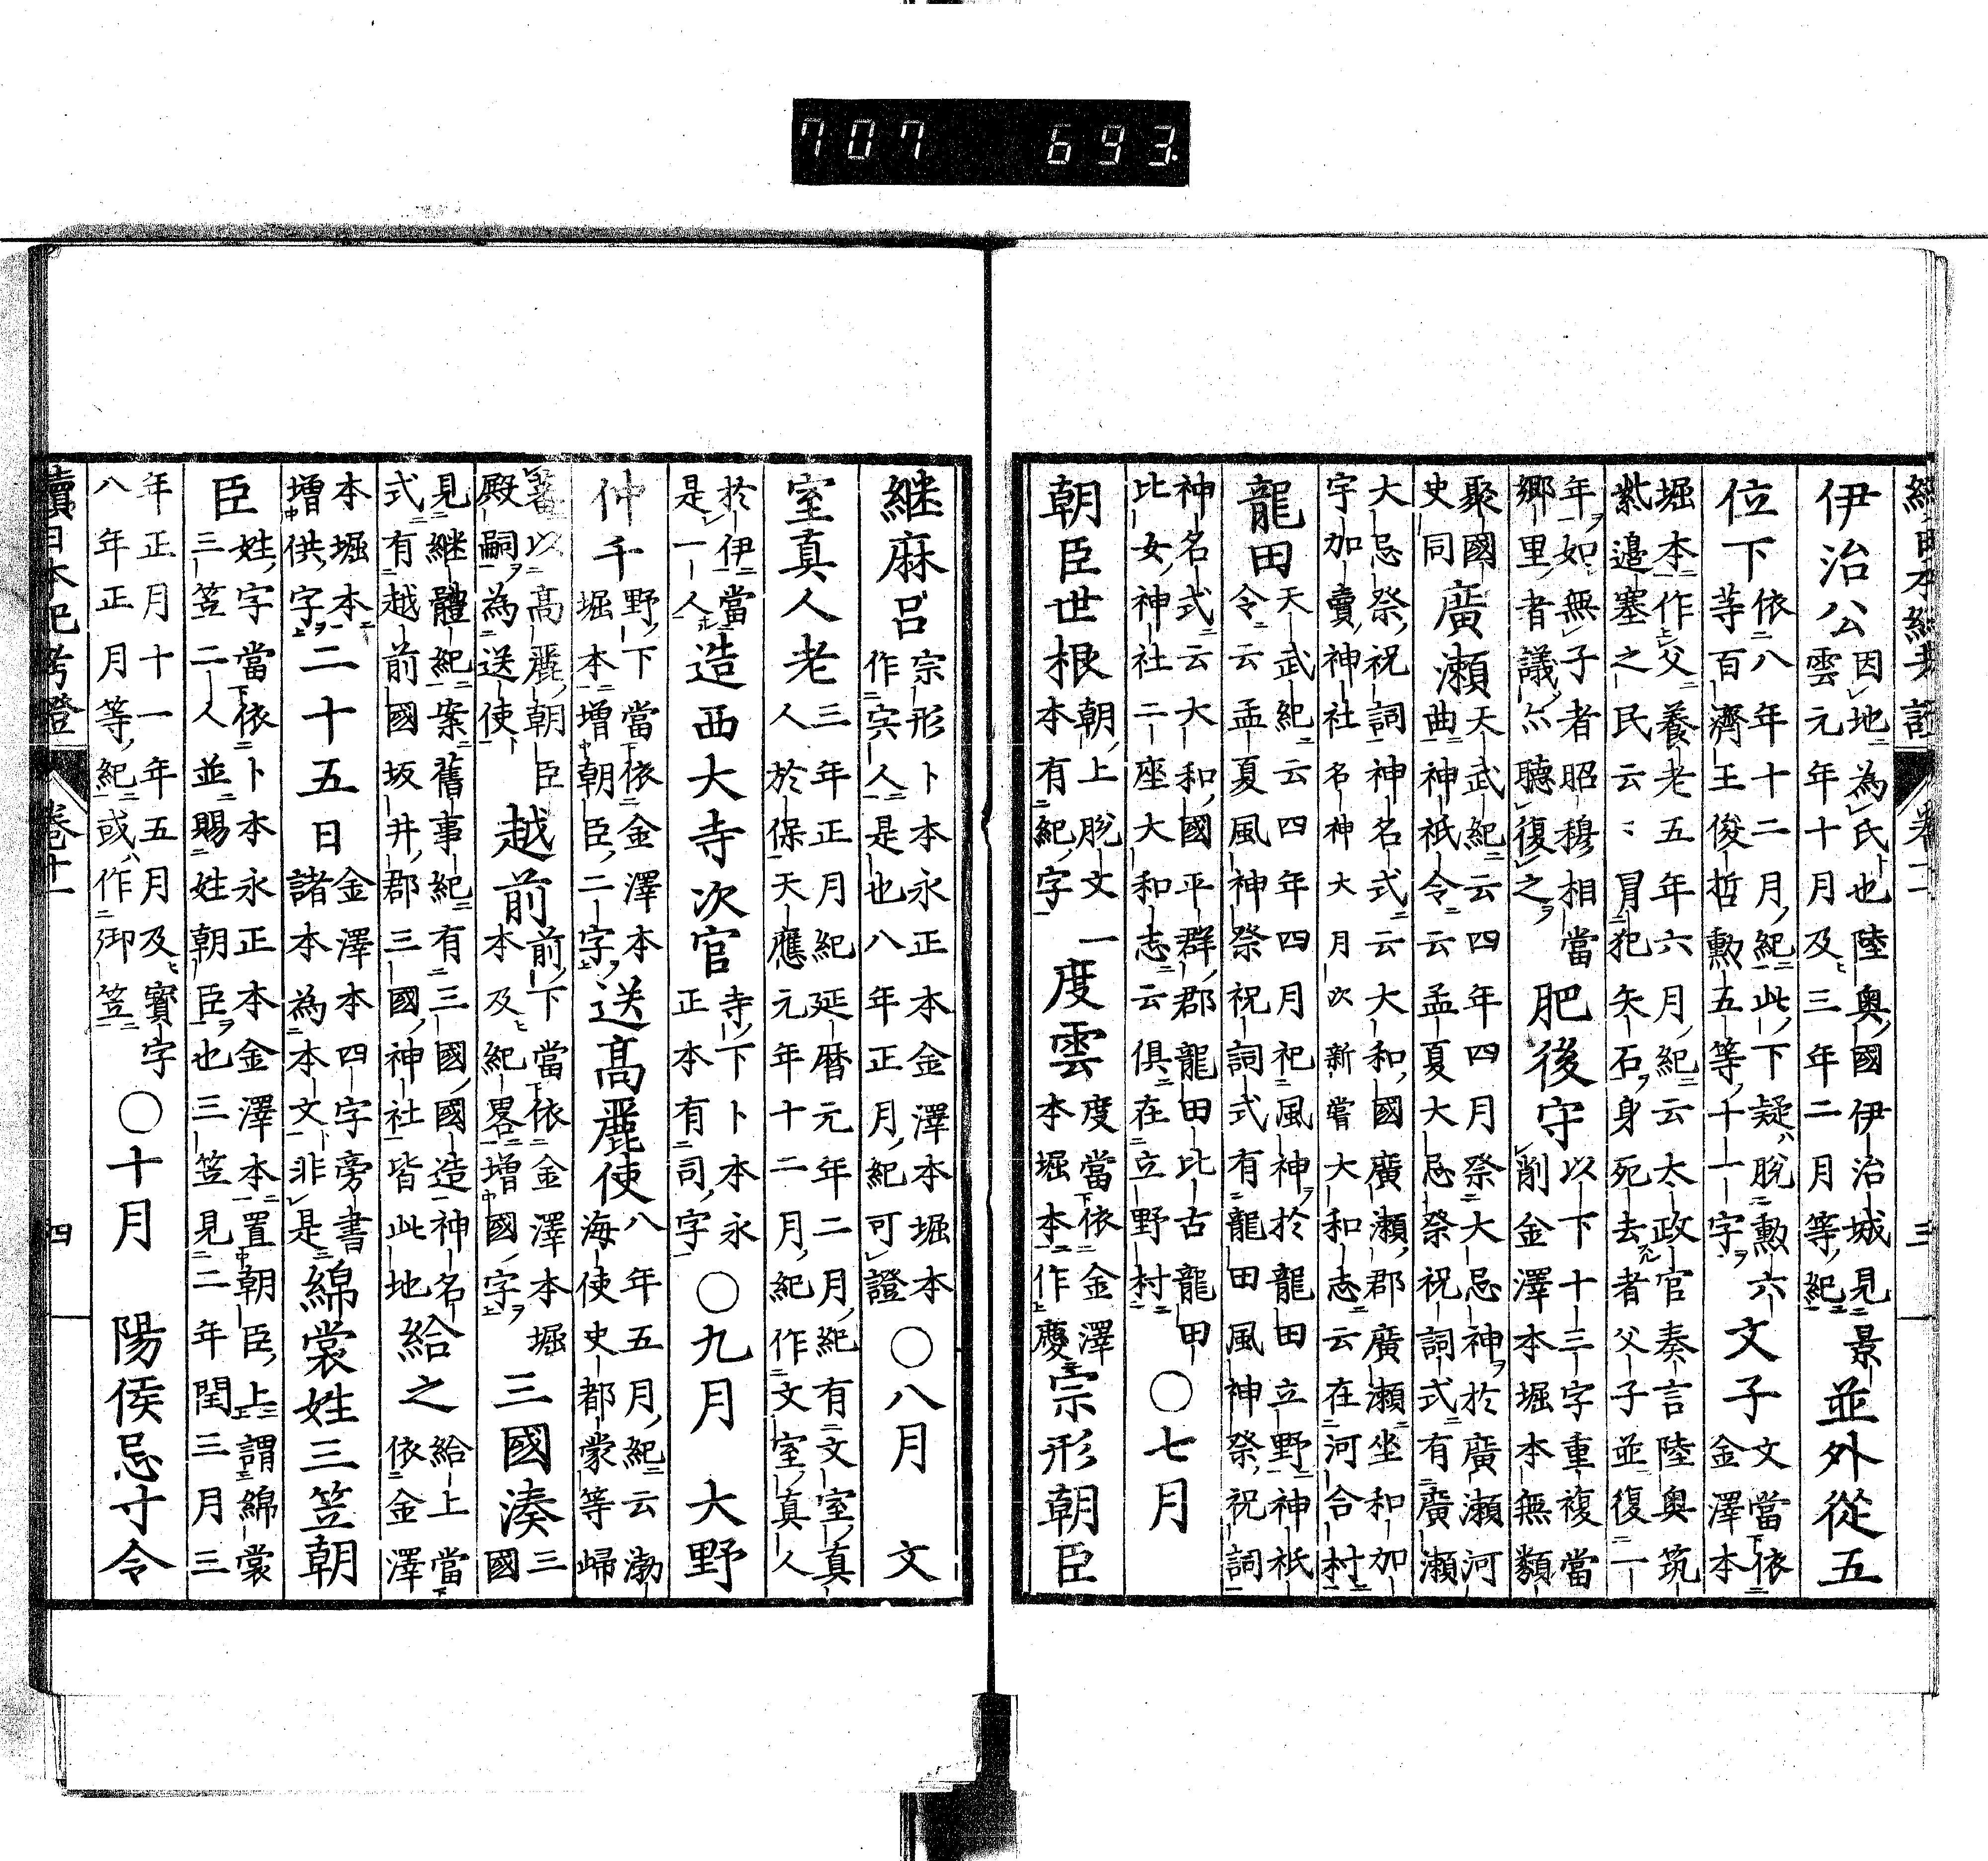 續日本紀考證 三
伊治公因地為氏也陸奥國伊治城見景雲元年十月及三年二月等紀並外從五
位下依八年十二月紀此下疑脫勳六等百濟王俊哲勳五等十一字文子文當依金澤本
堀本作父養老五年六月紀云太政官奏言陸奥筑紫邉塞之民云〻冐犯矢石身死去者父子並復一
年如無子者昭穆相當鄉里者議亦聽復之肥後守以下十三字重複當削金澤本堀本無類
聚國史同廣瀬天武紀云四年四月祭大忌神於廣瀬河曲神祇令云孟夏大忌祭祝詞式有廣瀬
大忌祭祝詞神名式云大和國廣瀬郡廣瀬坐和加字加賣神社名神大月次新嘗大和志云在河合村
龍田天武紀云四年四月祀風神於龍田立野神祇令云孟夏風神祭祝詞式有龍田風神祭祝詞
神名式云大和國平群郡龍田比古龍田比女神社二座大和志云俱在立野村〇七月
朝臣世根朝上脫文本有紀字一度雲度當依金澤本堀本作慶宗形朝臣
継麻呂宗形卜本永正本金澤本堀本作宍人是也八年正月紀可證〇八月 文
室真人老三年正月紀延暦元年二月紀有文室真人於保天應元年十二月紀作文室真人
於伊當是一人造西大寺次官寺下卜本永正本有司字〇九月 大野
仲千野下當依金澤本堀本増朝臣二字送髙麗使八年五月紀云渤海使史都蒙等歸
蕃以髙麗朝臣殿嗣為送使越前前下當依金澤本堀本及紀畧増國字三國湊三國
見継體紀案舊事紀有三國國造神名式有越前國坂井郡三國神社皆此地給之給上當依金澤
本堀本増供字二十五日金澤本四字旁書諸本為本文非是綿裳姓三笠朝
臣姓字當依卜本永正本金澤本置朝臣上謂綿裳三笠二人並賜姓朝臣也三笠見二年閏三月三
年正月十一年五月及寶字八年正月等紀或作御笠〇十月 陽侯忌寸令
續日本紀考證 卷十一 四
707 693.